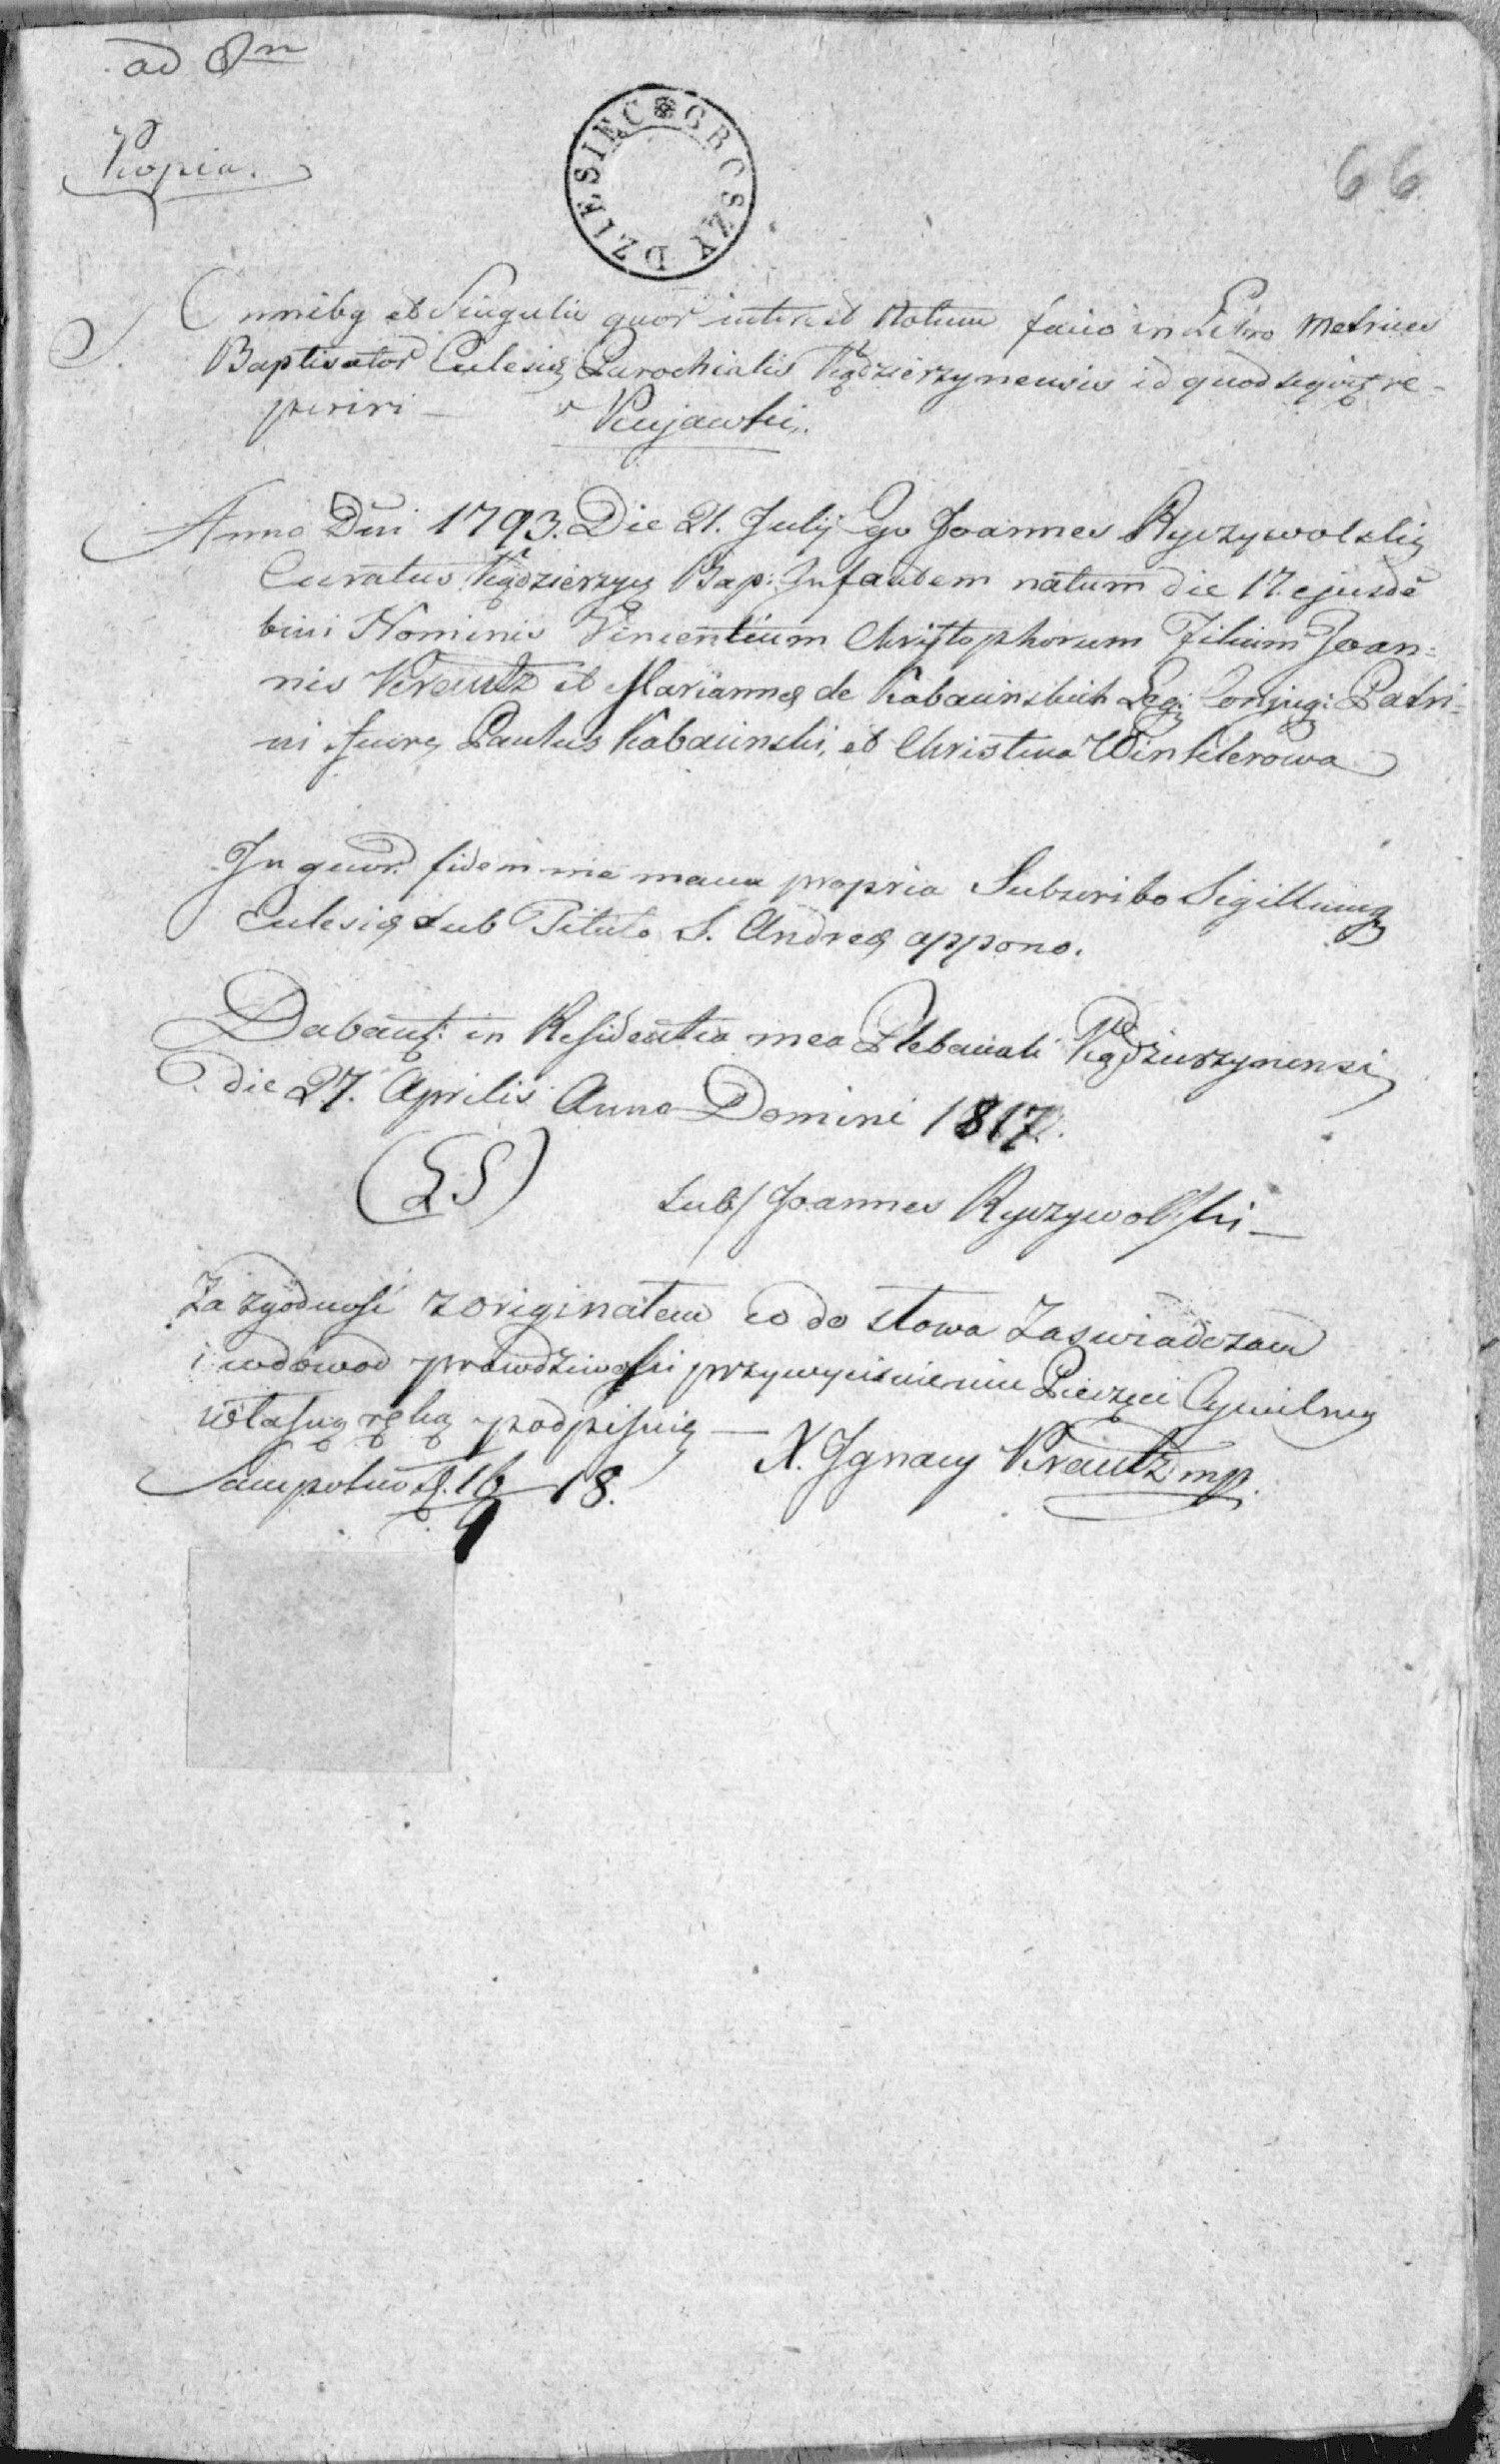 ad 8m
Kopia.
DZIESIEC GROSZY
66
Omnibq et Singulis quor interest Notum facio in Libro Metrices
Baptisator Eclesię Parochialis Kędzierzynensis id quod seqvit re-
periri —
Kujawski.
Anno Dni 1793. Die 21. Julij Ego Joannes Ryczywolski
Curatus Kędzierzyn Bap: Infantem natum die 17 ejusde
bini Nominis Vincentium Christophorum Filium Joan=
nis Krautz et Marianną de Kabacinskich Leg: Conjug: Patri=
ni fuere Paulus Kabacinski, et Christina Winklerowa
In quor fidem me manu propria Subscribo Sigillumq
Eclesię sub Titulo S. Andreę appono.
Dabant: in Residentia mea Plebanali Kędzierzynensi
die 27. Aprilis Anno Domini 1817.
(LS)
sub/ Joannes Ryczywolski —
Za zgodność z originałem co do słowa Zaswiadczam
i wdowod prawdziwości przywyciśnieniu Pieczęci Cywilney
własną ręką podpisuię —
X. Ignacy Krautz mp.
Sampolno d. 16/9 18.